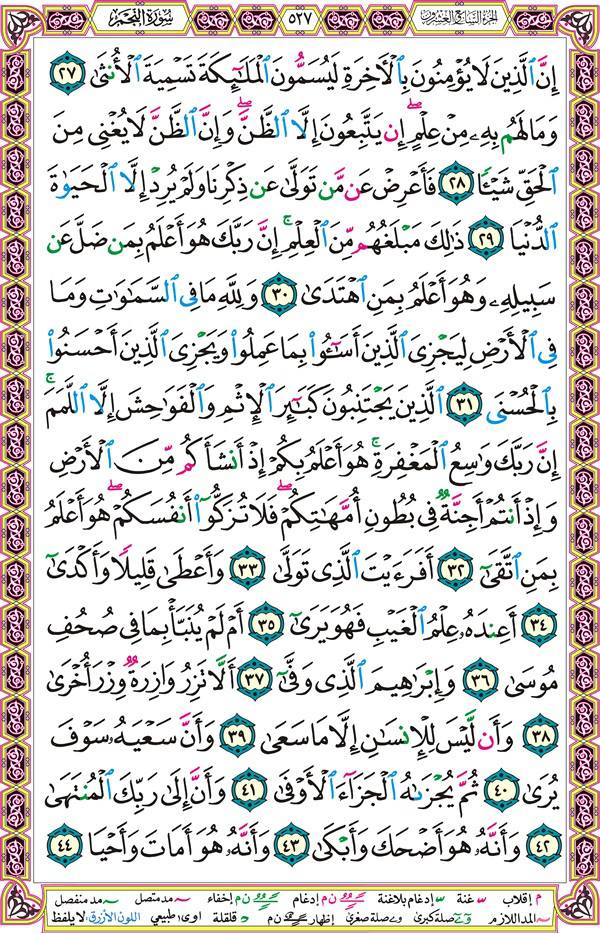 الجزء السابع والعشرون ٥٢٧ سورة النجم
إِنَّ ٱلَّذِينَ لَا يُؤۡمِنُونَ بِٱلۡأٓخِرَةِ لَيُسَمُّونَ ٱلۡمَلَٰٓئِكَةَ تَسۡمِيَةَ ٱلۡأُنثَىٰ ٢٧
وَمَا لَهُم بِهِۦ مِنۡ عِلۡمٍۖ إِن يَتَّبِعُونَ إِلَّا ٱلظَّنَّۖ وَإِنَّ ٱلظَّنَّ لَا يُغۡنِي مِنَ
ٱلۡحَقِّ شَيۡـٔٗا ٢٨ فَأَعۡرِضۡ عَن مَّن تَوَلَّىٰ عَن ذِكۡرِنَا وَلَمۡ يُرِدۡ إِلَّا ٱلۡحَيَوٰةَ
ٱلدُّنۡيَا ٢٩ ذَٰلِكَ مَبۡلَغُهُم مِّنَ ٱلۡعِلۡمِۚ إِنَّ رَبَّكَ هُوَ أَعۡلَمُ بِمَن ضَلَّ عَن
سَبِيلِهِۦ وَهُوَ أَعۡلَمُ بِمَنِ ٱهۡتَدَىٰ ٣٠ وَلِلَّهِ مَا فِي ٱلسَّمَٰوَٰتِ وَمَا
فِي ٱلۡأَرۡضِ لِيَجۡزِيَ ٱلَّذِينَ أَسَٰٓـُٔواْ بِمَا عَمِلُواْ وَيَجۡزِيَ ٱلَّذِينَ أَحۡسَنُواْ
بِٱلۡحُسۡنَى ٣١ ٱلَّذِينَ يَجۡتَنِبُونَ كَبَٰٓئِرَ ٱلۡإِثۡمِ وَٱلۡفَوَٰحِشَ إِلَّا ٱللَّمَمَۚ
إِنَّ رَبَّكَ وَٰسِعُ ٱلۡمَغۡفِرَةِۚ هُوَ أَعۡلَمُ بِكُمۡ إِذۡ أَنشَأَكُم مِّنَ ٱلۡأَرۡضِ
وَإِذۡ أَنتُمۡ أَجِنَّةٞ فِي بُطُونِ أُمَّهَٰتِكُمۡۖ فَلَا تُزَكُّوٓاْ أَنفُسَكُمۡۖ هُوَ أَعۡلَمُ
بِمَنِ ٱتَّقَىٰٓ ٣٢ أَفَرَءَيۡتَ ٱلَّذِي تَوَلَّىٰ ٣٣ وَأَعۡطَىٰ قَلِيلٗا وَأَكۡدَىٰٓ
٣٤ أَعِندَهُۥ عِلۡمُ ٱلۡغَيۡبِ فَهُوَ يَرَىٰٓ ٣٥ أَمۡ لَمۡ يُنَبَّأۡ بِمَا فِي صُحُفِ
مُوسَىٰ ٣٦ وَإِبۡرَٰهِيمَ ٱلَّذِي وَفَّىٰٓ ٣٧ أَلَّا تَزِرُ وَازِرَةٞ وِزۡرَ أُخۡرَىٰ
٣٨ وَأَن لَّيۡسَ لِلۡإِنسَٰنِ إِلَّا مَا سَعَىٰ ٣٩ وَأَنَّ سَعۡيَهُۥ سَوۡفَ
يُرَىٰ ٤٠ ثُمَّ يُجۡزَىٰهُ ٱلۡجَزَآءَ ٱلۡأَوۡفَىٰ ٤١ وَأَنَّ إِلَىٰ رَبِّكَ ٱلۡمُنتَهَىٰ
٤٢ وَأَنَّهُۥ هُوَ أَضۡحَكَ وَأَبۡكَىٰ ٤٣ وَأَنَّهُۥ هُوَ أَمَاتَ وَأَحۡيَا ٤٤
م إقلاب غنة إدغام بلاغنة ن م إدغام ن م إخفاء مد متصل مد منفصل
المد اللازم صلة كبرى صلة صغرى إظهار ن م قلقلة اوى طبيعي اللون الأزرق: لا يلفظ